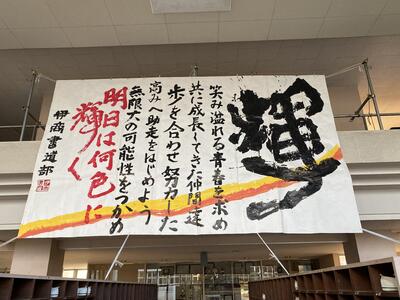 輝
笑み溢れる青春を求め
共に成長してきた仲間達
歩を合わせ努力した
高みへ助走をはじめよう
無限大の可能性をつかめ
明日は何色に
輝く
伊商書道部